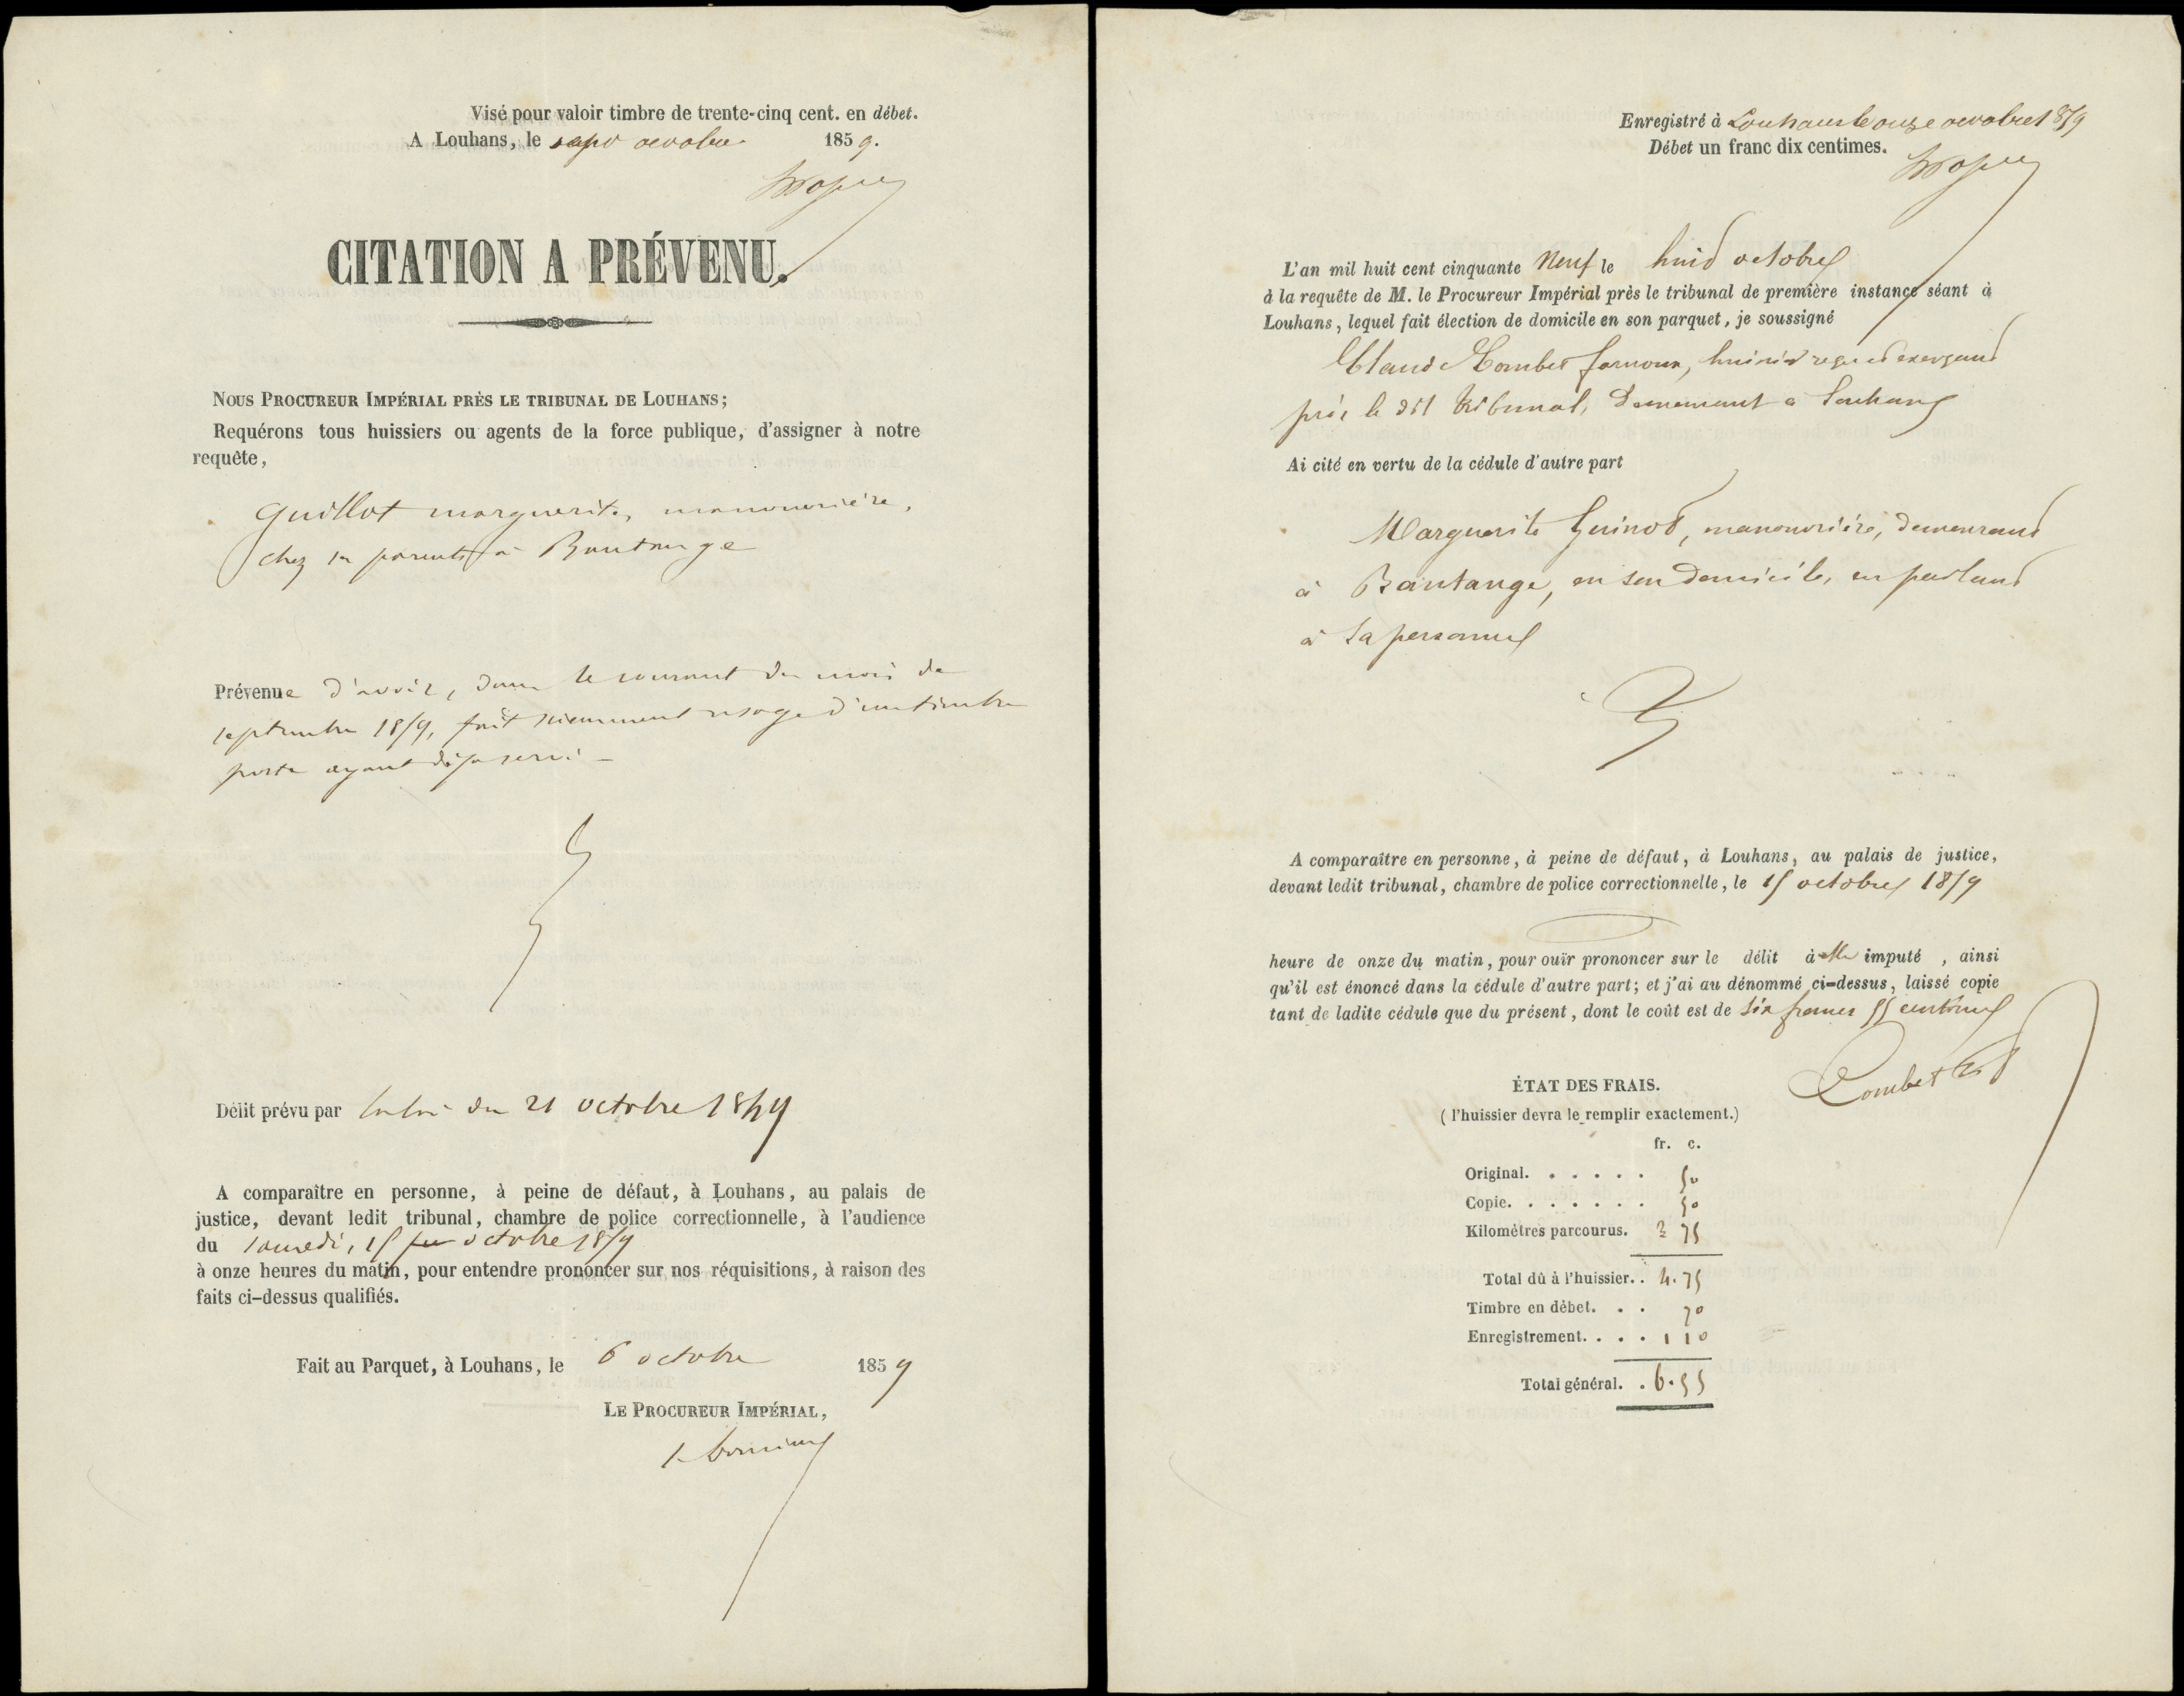 Visé pour valoir timbre de trente-cinq cent. en débet.
A Louhans, le sept octobre 1859.
CITATION A PRÉVENU.
NOUS PROCUREUR IMPÉRIAL PRÈS LE TRIBUNAL DE LOUHANS;
Requérons tous huissiers ou agents de la force publique, d'assigner à notre
requête,
Guillot marguerite, manouvrière,
chez ses parents à Bantange
Prévenue d'avoir, dans le courant du mois de
septembre 1859, fait sciemment usage d'un timbre
poste ayant déjà servi —
Délit prévu par la loi du 21 octobre 1849
A comparaître en personne, à peine de défaut, à Louhans, au palais de
justice, devant ledit tribunal, chambre de police correctionnelle, à l'audience
du samedi, 15 octobre 1859
à onze heures du matin, pour entendre prononcer sur nos réquisitions, à raison des
faits ci-dessus qualifiés.
Fait au Parquet, à Louhans, le 6 octobre 1859
LE PROCUREUR IMPÉRIAL,
Enregistré à Louhans le onze octobre 1859
Débet un franc dix centimes.
L'an mil huit cent cinquante Neuf le huit octobre
à la requête de M. le Procureur Impérial près le tribunal de première instance séant à
Louhans, lequel fait élection de domicile en son parquet, je soussigné
Claude Combet, huissier reçu et exerçant
près le dit tribunal, demeurant à Louhans
Ai cité en vertu de la cédule d'autre part
Marguerite Guinot, manouvrière, demeurant
à Bantange, en son domicile, en parlant
à sa personne
A comparaître en personne, à peine de défaut, à Louhans, au palais de justice,
devant ledit tribunal, chambre de police correctionnelle, le 15 octobre 1859
heure de onze du matin, pour ouïr prononcer sur le délit à elle imputé , ainsi
qu'il est énoncé dans la cédule d'autre part; et j'ai au dénommé ci-dessus, laissé copie
tant de ladite cédule que du présent, dont le coût est de six francs 55 centimes
Combet
ÉTAT DES FRAIS.
( l'huissier devra le remplir exactement.)
fr. c.
Original. . . . . . 50
Copie. . . . . . . 50
Kilomètres parcourus. 3 75
Total dû à l'huissier. . 4.75
Timbre en débet. . . 70
Enregistrement. . . . 1 10
Total général. . 6.55